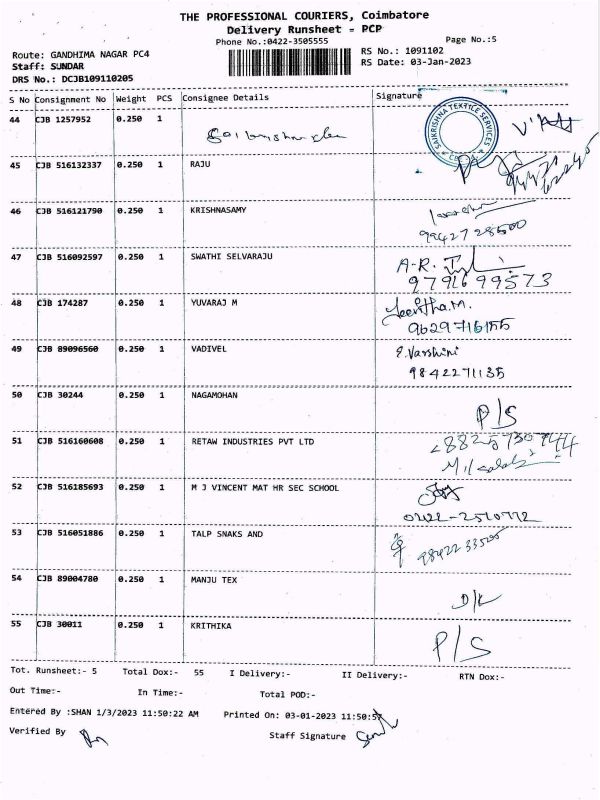 THE PROFESSIONAL COURIERS, Coimbatore
Delivery Runsheet = PCP
Phone No.:0422-3505555 Page No.:5
Route: GANDHIMA NAGAR PC4 RS No.: 1091102
Staff: SUNDAR RS Date: 03-Jan-2023
DRS No.: DCJB109110205
S No Consignment No Weight PCS Consignee Details Signature
44 CJB 1257952 0.250 1
SAIKRISHNA TEKTICE SERVICES
45 CJB 516132337 0.250 1 RAJU
46 CJB 516121790 0.250 1 KRISHNASAMY
9942728500
47 CJB 516092597 0.250 1 SWATHI SELVARAJU
A-R.
9791699573
48 CJB 174287 0.250 1 YUVARAJ M
Jeevitha.M.
9629716155
49 CJB 89096560 0.250 1 VADIVEL
E.Varshini
9842271135
50 CJB 30244 0.250 1 NAGAMOHAN
P/S
51 CJB 516160608 0.250 1 RETAW INDUSTRIES PVT LTD
52 CJB 516185693 0.250 1 M J VINCENT MAT HR SEC SCHOOL
53 CJB 516051886 0.250 1 TALP SNAKS AND
54 CJB 89004780 0.250 1 MANJU TEX
D/L
55 CJB 30011 0.250 1 KRITHIKA
P/S
Tot. Runsheet:- 5 Total Dox:- 55 I Delivery:- II Delivery:- RTN Dox:-
Out Time:- In Time:- Total POD:-
Entered By :SHAN 1/3/2023 11:50:22 AM Printed On: 03-01-2023 11:50:57
Verified By Staff Signature